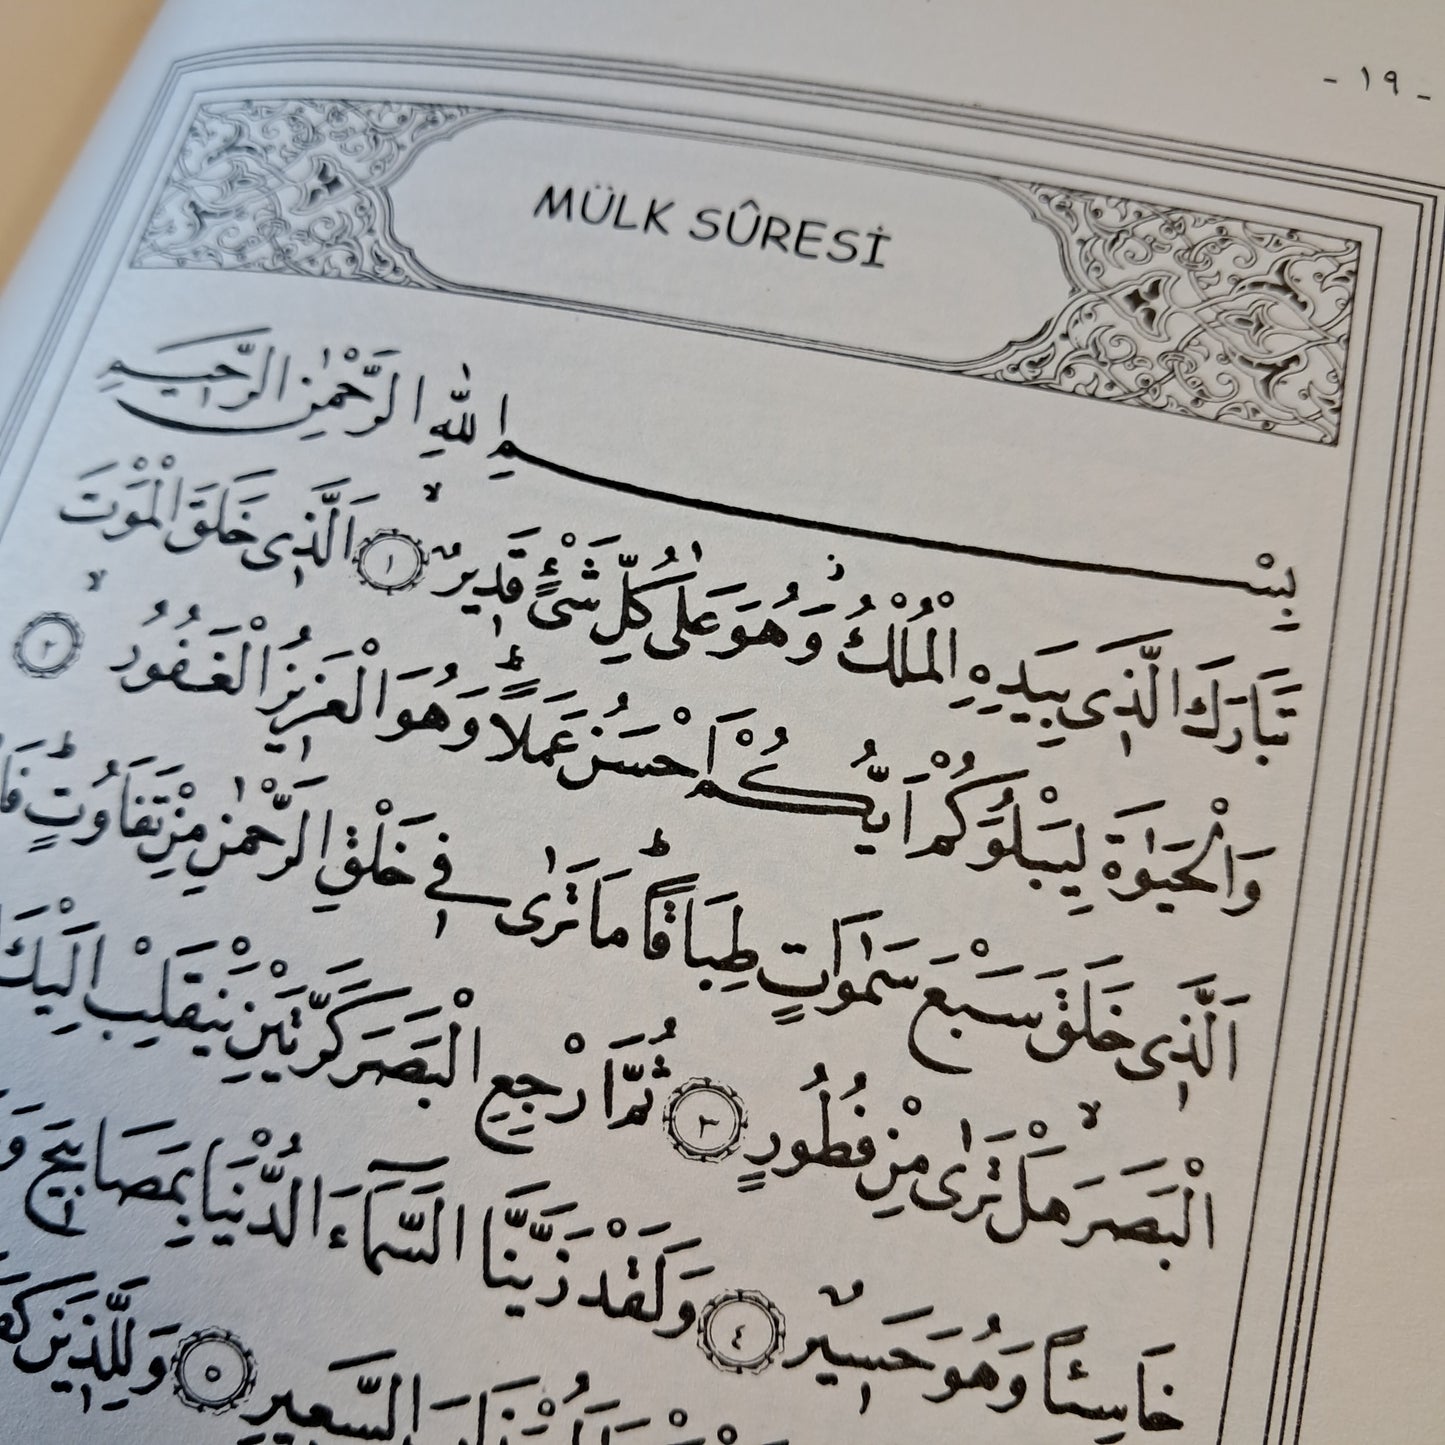 - ١٩ -
MÜLK SÛRESİ
بِسْمِ اللّٰهِ الرَّحْمٰنِ الرَّحٖيمِ
تَبَارَكَ الَّذٖى بِيَدِهِ الْمُلْكُ وَهُوَ عَلٰى كُلِّ شَىْءٍ قَدٖيرٌ ﴿١﴾ اَلَّذٖى خَلَقَ الْمَوْتَ
وَالْحَيٰوةَ لِيَبْلُوَكُمْ اَيُّكُمْ اَحْسَنُ عَمَلًا وَهُوَ الْعَزٖيزُ الْغَفُورُ ﴿٢﴾
اَلَّذٖى خَلَقَ سَبْعَ سَمٰوَاتٍ طِبَاقًا مَا تَرٰى فٖى خَلْقِ الرَّحْمٰنِ مِنْ تَفَاوُتٍ
الْبَصَرَ هَلْ تَرٰى مِنْ فُطُورٍ ﴿٣﴾ ثُمَّ ارْجِعِ الْبَصَرَ كَرَّتَيْنِ يَنْقَلِبْ اِلَيْكَ
خَاسِئًا وَهُوَ حَسٖيرٌ ﴿٤﴾ وَلَقَدْ زَيَّنَّا السَّمَاءَ الدُّنْيَا بِمَصَابٖيحَ
السَّعٖيرِ ﴿٥﴾ وَلِلَّذٖينَ